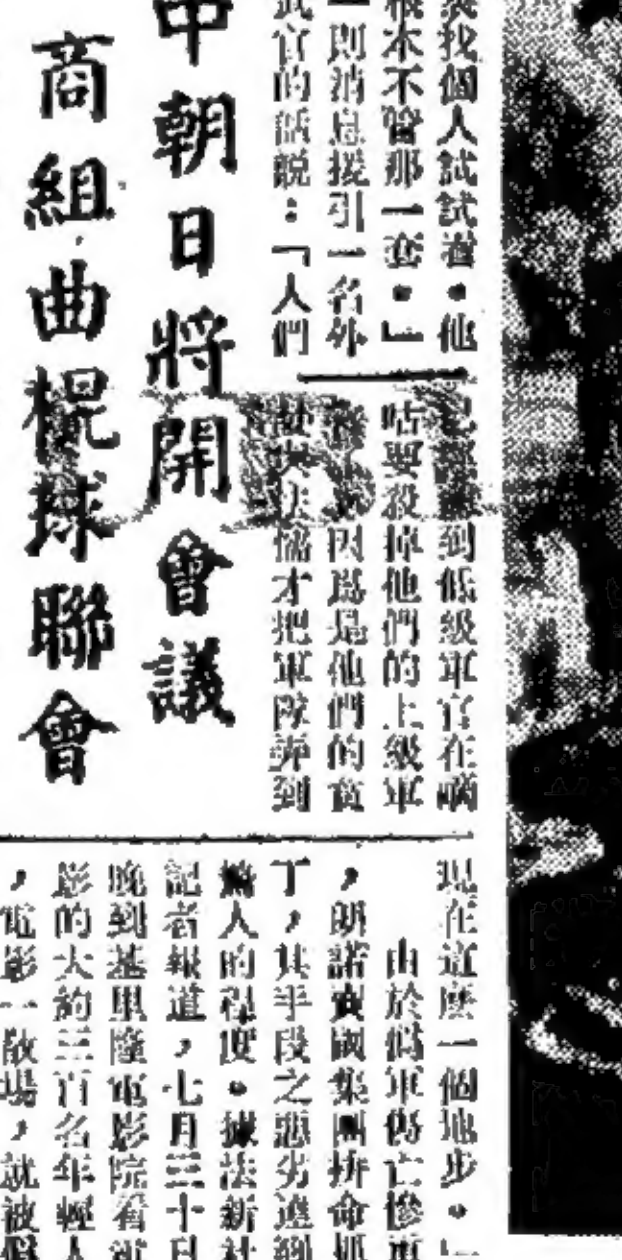 找個人試試看。他
根本不管那一套。」
一則消息援引一名外
武官的話說：「人們
到低級軍官在嘀
咕要殺掉他們的上級軍
因爲是他們的貪
才把軍隊弄到
中朝日將開會議
商組曲棍球聯會
現在這麼一個地步。」
由於僞軍傷亡慘重
，朗諾賣國集團拚命抓
丁，其手段之惡劣達到
人的程度。據法新社
記者報道，七月三十日
晚到基里隆電影院看電
影的大約三百名年輕人
，電影一散場，就被僞